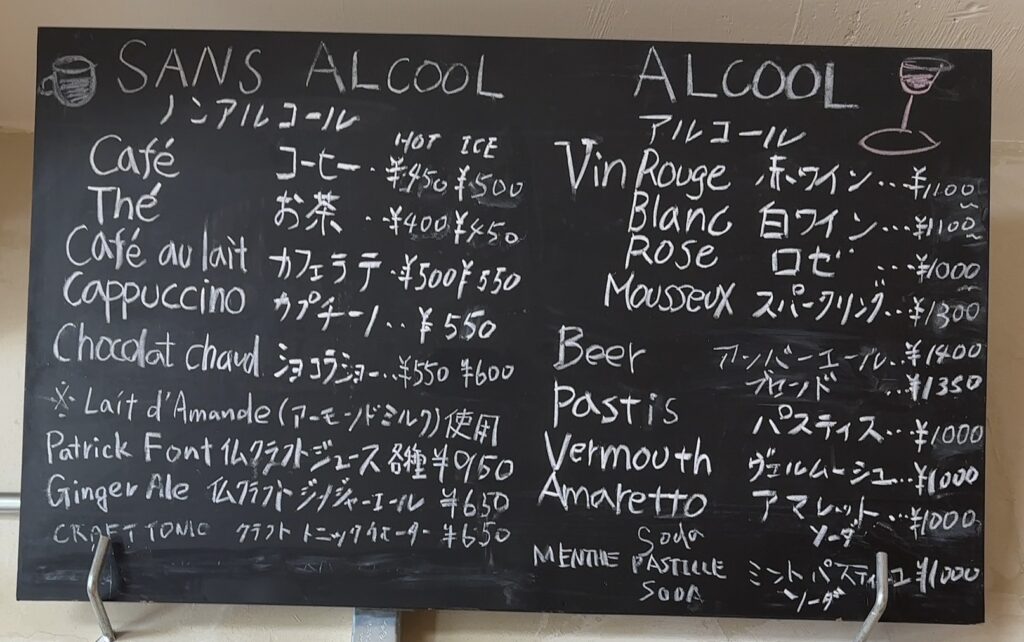 SANS ALCOOL
ノンアルコール
HOT ICE
Café コーヒー..¥450 ¥500
Thé お茶..¥400 ¥450
Café au lait カフェラテ.¥500 ¥550
Cappuccino カプチーノ..¥550
Chocolat chaud ショコラショー...¥550 ¥600
※ Lait d'Amande (アーモンドミルク) 使用
Patrick Font 仏クラフトジュース 各種 ¥950
Ginger Ale 仏クラフトジンジャーエール ¥650
CRAFT TONIC クラフトトニックウォーター ¥650
ALCOOL
アルコール
Vin Rouge 赤ワイン...¥1100
Blanc 白ワイン...¥1100
Rose ロゼ...¥1000
Mousseux スパークリング...¥1300
Beer アンバーエール..¥1400
ブロンド..¥1350
Pastis パスティス...¥1000
Vermouth ヴェルムーシュ...¥1000
Amaretto アマレット...¥1000
Soda ソーダ
MENTHE PASTILLE ミントパスティーユ ¥1000
SODA ソーダ